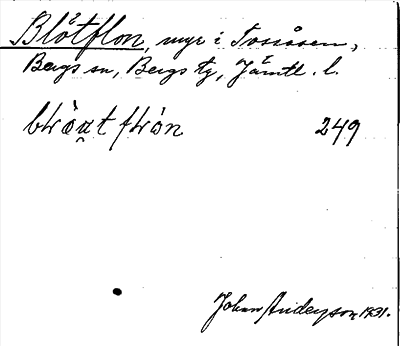 Blötflon, myr i Tossåsen,
Bergs sn, Bergs tg, Jämtl. l.
249
Johan Anderson 1931.